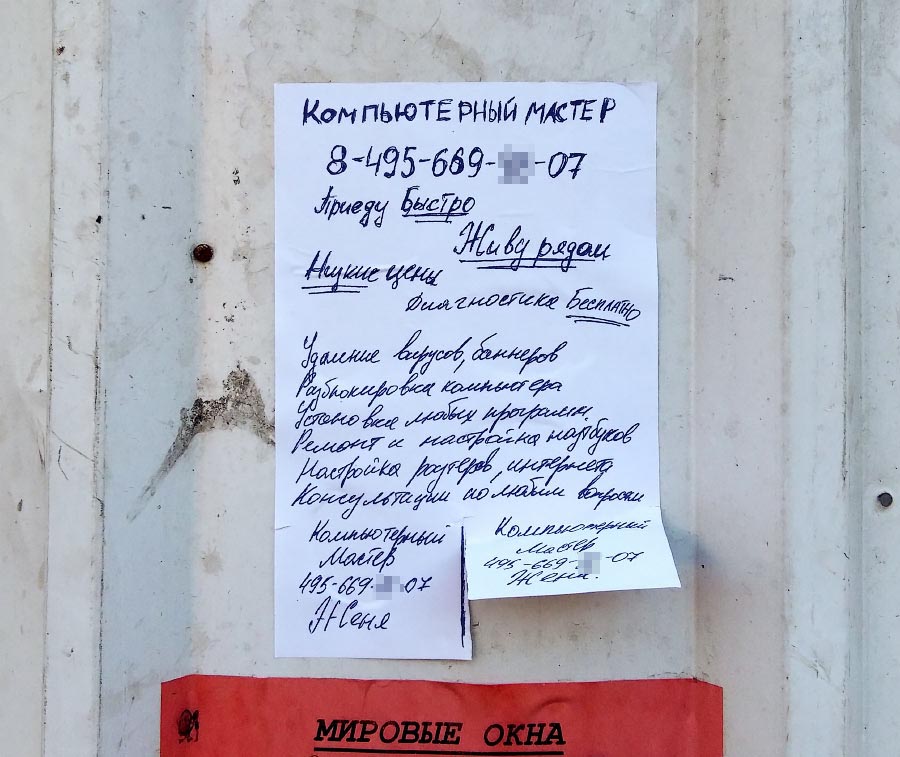 Компьютерный мастер
8-495-669- -07
Приеду Быстро
Живу рядом
Низкие цены
Диагностика Бесплатно
Удаление вирусов, баннеров
Разблокировка компьютера
Установка любых программ
Ремонт и настройка ноутбуков
Настройка роутеров, интернета
Консультации по любым вопросам
Компьютерный
Мастер
495-669- -07
Женя
Компьютерный
Мастер
495-669- -07
Женя.
МИРОВЫЕ ОКНА